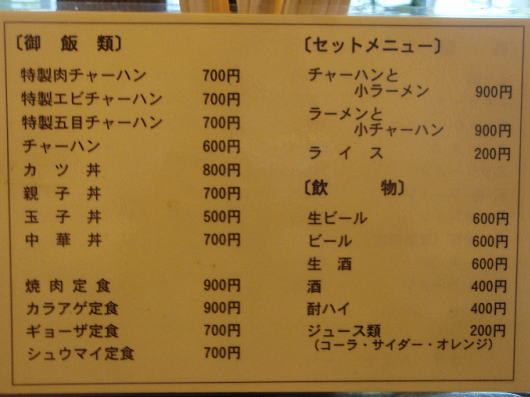 〔御飯類〕
特製肉チャーハン 700円
特製エビチャーハン 700円
特製五目チャーハン 700円
チャーハン 600円
カツ丼 800円
親子丼 700円
玉子丼 500円
中華丼 700円
焼肉定食 900円
カラアゲ定食 900円
ギョーザ定食 700円
シュウマイ定食 700円
〔セットメニュー〕
チャーハンと
小ラーメン 900円
ラーメンと
小チャーハン 900円
ライス 200円
〔飲物〕
生ビール 600円
ビール 600円
生酒 600円
酒 400円
酎ハイ 400円
ジュース類 200円
(コーラ・サイダー・オレンジ)